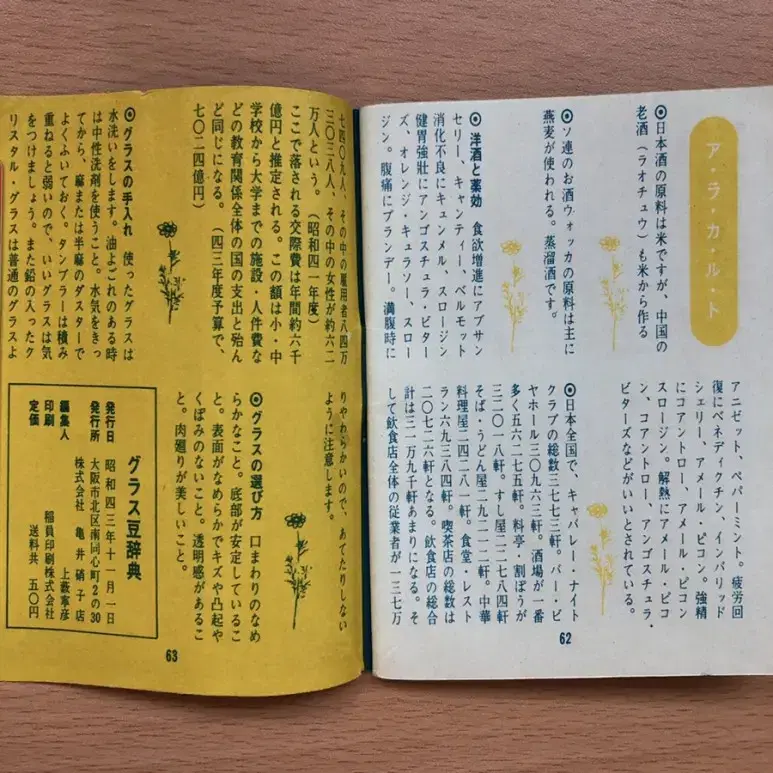 ア・ラ・カ・ル・ト
◎日本酒の原料は米ですが、中国の
老酒（ラオチュウ）も米から作る
◎ソ連のお酒ウォッカの原料は主に
燕麦が使われる。蒸溜酒です。
◎洋酒と薬効　食欲増進にアブサン
セリー、キャンティー、ベルモット
消化不良にキュンメル、スロージン
健胃強壮にアンゴスチュラ・ビター
ズ、オレンジ・キュラソー、スロー
ジン。腹痛にブランデー。満腹時に
アニゼット、ペパーミント。疲労回
復にベネディクチン、インバリッド
シェリー、アメール・ピコン。強精
にコアントロー、アメール・ピコン
スロージン。解熱にアメール・ピコ
ン、コアントロー、アンゴスチュラ・
ビターズなどがいいとされている。
◎日本全国で、キャバレー・ナイト
クラブの総数三七七三軒。バー・ビ
ヤホール三〇九六三軒。酒場が一番
多く五六二七五軒。料亭・割ぽうが
三二〇一八軒。すし屋二二七八四軒
そば・うどん屋二九二一二軒。中華
料理屋二四二八一軒。食堂・レスト
ラン六九三八四軒。喫茶店の総数は
二〇七二六軒となる。飲食店の総合
計は三一万九千軒あまりになる。そ
して飲食店全体の従業者が一三七万
62
七四〇九人、その中の雇用者八四万
三〇三八人、その中の女性が約六二
万人という。（昭和四一年度）
ここで落される交際費は年間約六千
億円と推定される。この額は小・中
学校から大学までの施設・人件費な
どの教育関係全体の国の支出と殆ん
ど同じになる。（四三年度予算で、
七〇二四億円）
◎グラスの手入れ　使ったグラスは
水洗いをします。油よごれのある時
は中性洗剤を使うこと。水気をきっ
てから、麻または半麻のダスターで
よくふいておく。タンブラーは積み
重ねると弱いので、いいグラスは気
をつけましょう。また鉛の入ったク
リスタル・グラスは普通のグラスよ
りやわらかいので、あてたりしない
ように注意します。
◎グラスの選び方　口まわりのなめ
らかなこと。底部が安定しているこ
と。表面がなめらかでキズや凸起や
くぼみのないこと。透明感があるこ
と。肉廻りが美しいこと。
グラス豆辞典
発行日　昭和四三年十一月一日
発行所　大阪市北区南同心町２の30
株式会社　亀井硝子店
編集人　上薮寧彦
印刷　稲員印刷株式会社
定価　送料共　五〇円
63